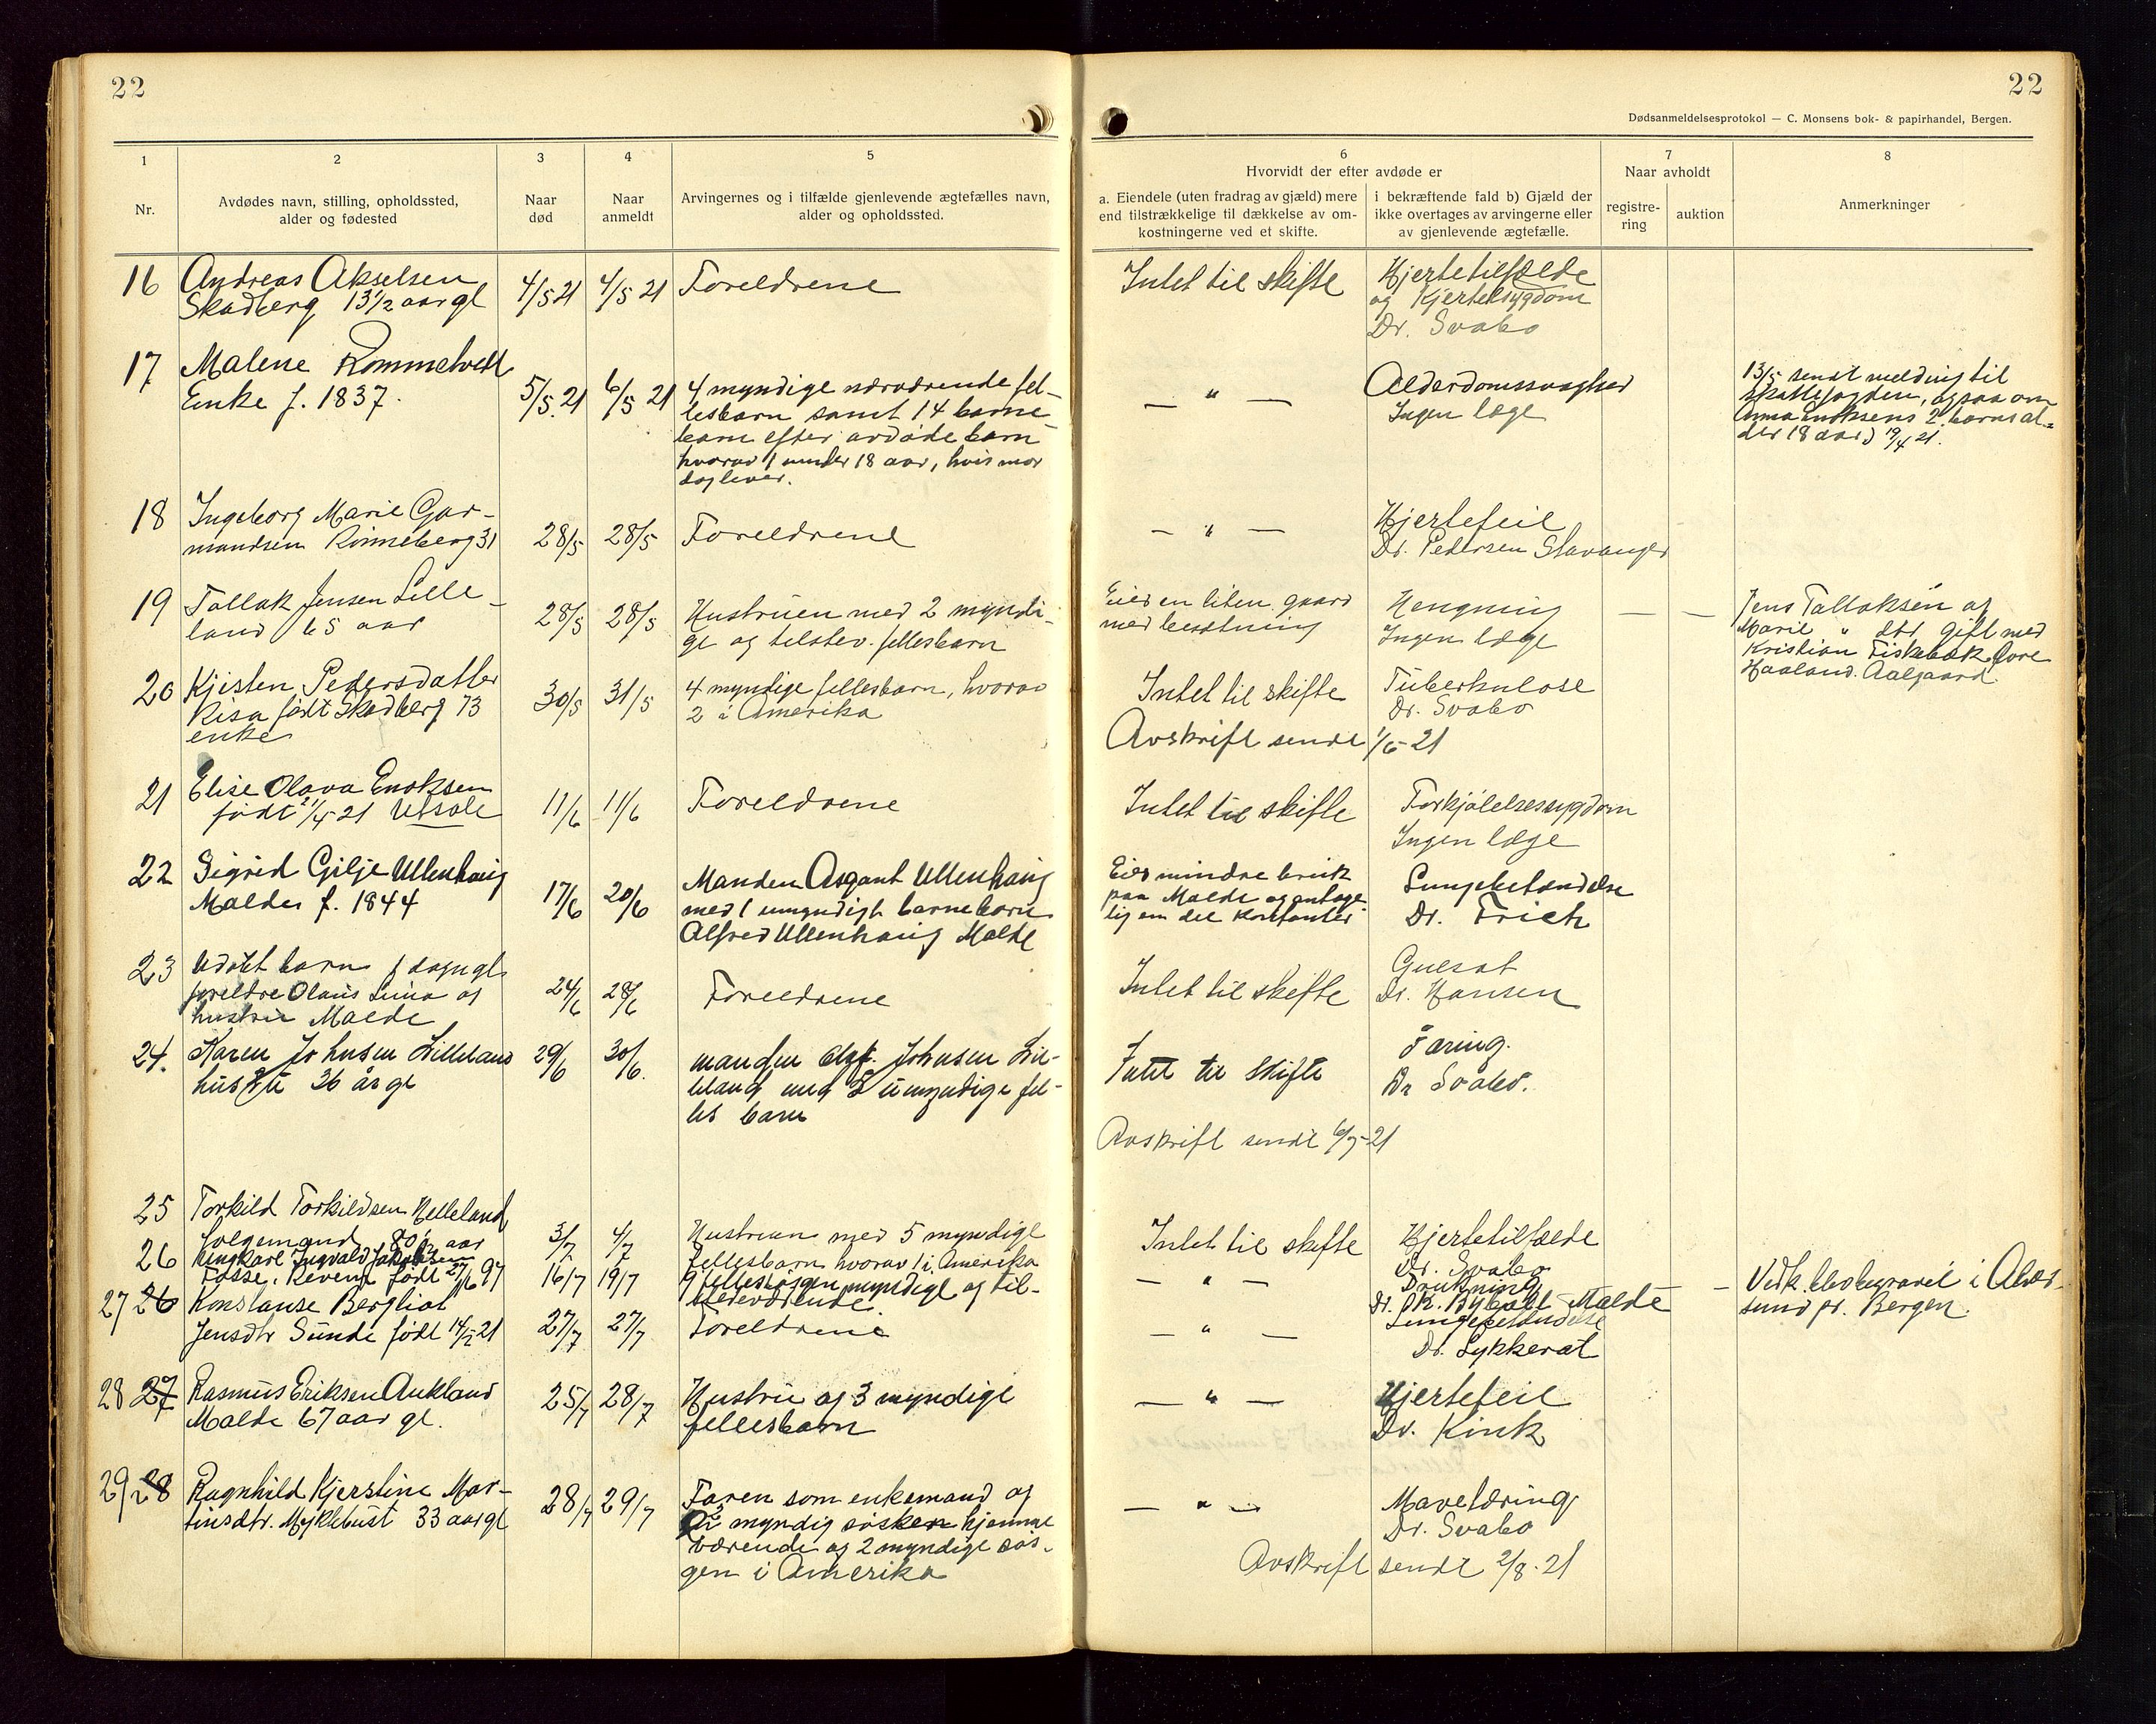 22
22
Dødsanmeldelsesprotokol — C. Monsens bok- & papirhandel, Bergen.
1
Nr.
2
Avdødes navn, stilling, opholdssted,
alder og fødested
3
Naar
død
4
Naar
anmeldt
5
Arvingernes og i tilfælde gjenlevende ægtefælles navn,
alder og opholdssted.
6
Hvorvidt der efter avdøde er
a. Eiendele (uten fradrag av gjæld) mere
end tilstrækkelige til dækkelse av om-
kostningerne ved et skifte.
i bekræftende fald b) Gjæld der
ikke overtages av arvingerne eller
av gjenlevende ægtefælle.
7
Naar avholdt
registre-
ring
auktion
8
Anmerkninger
16
Andreas Akselsen
Skadberg 13½ aar gl
4/5 21
4/5 21
Foreldrene
Intet til skifte
Hjertetilfælde
og Kjertelsygdom
Dr. Svabo
17
Malene Rommetvedt
Enke f. 1837.
5/5. 21
6/5 21
4 myndige nærværende fel-
lesbarn samt 14 barne-
barn efter avdøde barn
hvorav 1 under 18 aar, hvis mor
dog lever.
— " —
Alderdomssvaghed
Ingen læge
13/5 sendt melding til
skattefogden, ogsaa om
Anna Enoksens 2 barns al-
der 18 aar)
18
Ingeborg Marie Gar-
mandsen Rønneberg 31
28/5
28/5
Foreldrene
— " —
Hjertefeil
Dr. Pedersen Stavanger
19
Tallak Jensen Lille-
land 65 aar
28/5
28/5
Hustruen med 2 myndi-
ge og tilstev. fellesbarn
Eier en liten gaard
med besætning
Hengning
Ingen læge
— —
Jens Tallaksen og
Marie " dtr gift med
Kristian Fiskebæk
Haaland. Aalgaard
20
Kjisten Pedersdatter
Risa født Skadberg 73
enke
30/5
31/5
4 myndige fellesbarn, hvorav
2 i Amerika
Intet til skifte
Tuberkulose
Dr. Svabo
Avskrift sendt 1/6-21
21
Elise Olava Enoksen
født 21/4 21 Utsole
11/6
11/6
Foreldrene
Intet til skifte
Forkjølelsessygdom
Ingen læge
22
Sigrid Gilje Ullenhaug
Malde f. 1844
17/6
20/6
Manden Asgaut Ullenhaug
med 1 umyndigt barnebarn
Alfred Ullenhaug Malde
Eier mindre bruk
paa Malde og antage-
lig en del kontanter
Lungebetændelse
Dr. Frich
23
Udøbt barn 1 dag gl
foreldre Olaus Lima og
hustru Malde
24/6
28/6
Foreldrene
Intet til skifte
Gulsot
Dr. Hansen
24.
Karen Johnsen Lilleland
hustru 36 år gl
29/6
30/6.
manden Johnsen Lil-
leland med 5 umyndige fel-
les barn
Intet til skifte
Tæring.
Dr Svabo.
Avskrift sendt 6/7-21
25
Torkild Torkildsen Helleland
folgemand 80½ aar
3/7
4/7
Hustruen med 5 myndige
fellesbarn hvorav 1 i Amerika
Intet til skifte
Hjertetilfælde
Dr. Svabo
26
Ungkarl Ingvald Jakobsen
Fosse, Revem født 27/6 97
16/7
19/7
9 fellesøsgen myndige og til-
stedeværende.
— " —
Drukning
— Vedk. blev begravet i Alver-
sund pr. Bergen.
27 26
Konstanse Bergliot
Jensdtr Sunde født 14/2 21
27/7
27/7
Foreldrene
— " —
Lungebetændelse
Dr. Lykkerøt
28 27
Rasmus Eriksen Aukland
Malde 67 aar gl.
25/7
28/7
Hustru og 3 myndige
fellesbarn
— " —
Hjertefeil
Dr. Kink
29 28
Ragnhild Kjerstine Mar-
tinsdtr. Myklebust 33 aar gl
28/7
29/7
Faren som enkemand og
myndig søsken hjemme
værende og 2 myndige søs-
gen i Amerika
— " —
Mavetæring
Dr. Svabo
Avskrift sendt 2/8-21